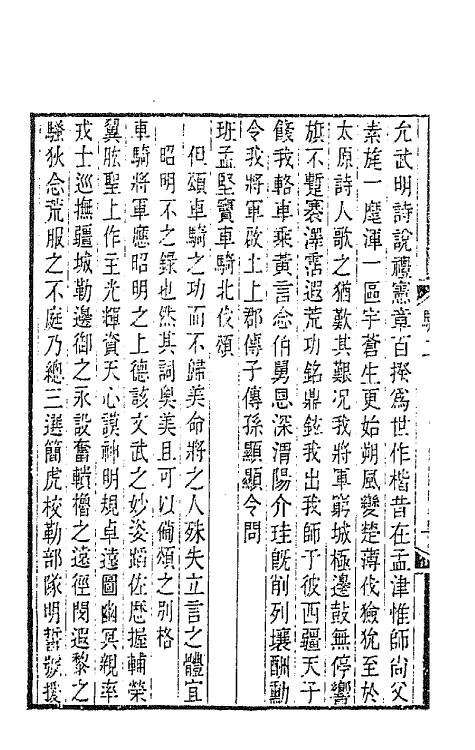 允武明詩說禮憲章百揆爲世作楷昔在孟津惟師尚父
素旄一麾渾一區宇蒼生更始朔風變楚薄伐獫狁至於
太原詩人歌之猶歎其艱况我將軍窮城極邊鼓無停響
旗不蹔褰澤霑遐荒功銘鼎鉉我出我師于彼西疆天子
餞我輅車乘黃言念伯舅恩深渭陽介珪旣削列壤酬勳
令我將軍啟土上郡傳子傳孫顯顯令問
班孟堅竇車騎北伐頌
但頌車騎之功而不歸美命將之人殊失立言之體宜
昭明不之錄也然其詞奧美且可以備頌之別格
車騎將軍應昭明之上德該文武之妙姿蹈佐歷握輔榮
翼肱聖上作主光輝資天心謨神明規卓遠圖幽冥親率
戎士巡撫疆城勒邊御之永設奮轒櫓之遠徑閔遐黎之
騷狄念荒服之不庭乃總三選簡虎校勒部隊明誓號援